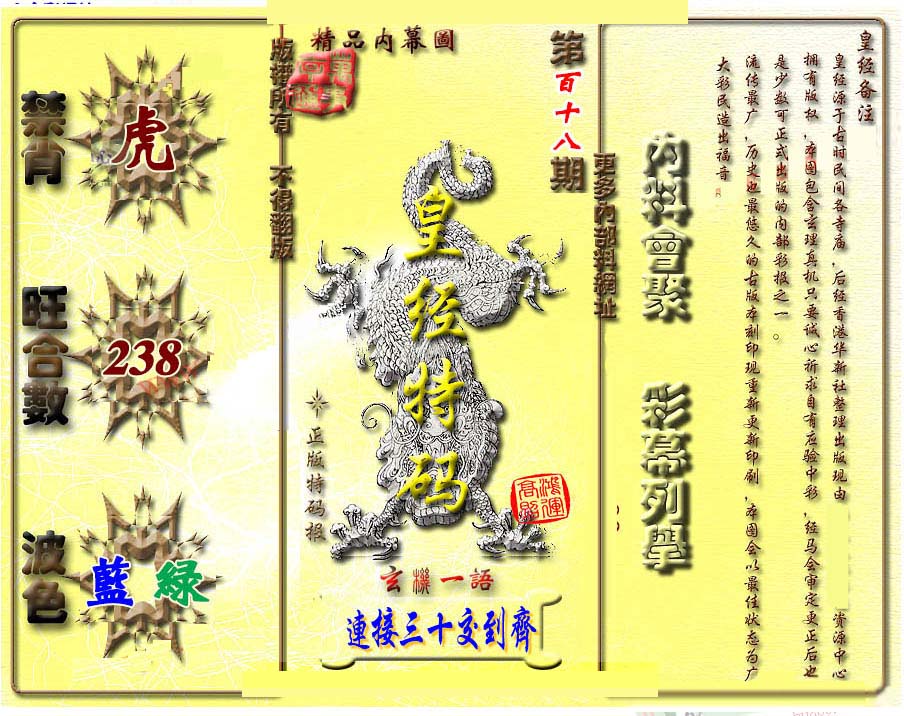 精品内幕圖
第百十八期
版權所有 不得翻版
更多内部料網址
禁肖
虎
旺合數
238
波色
藍 綠
皇经特码
正版特码报
鴻運高照
玄機一語
連接三十交到齊
内料會聚
彩幕列舉
皇经备注
皇经源于古时民间各寺庙，后经香港华新社整理出版现由 资源中心
拥有版权，本图包含玄理真机只要诚心祈求自有应验中彩，经马会审定更正后也
是少数可正式出版的内部彩报之一。
流传最广，历史也最悠久的古版本刻印现重新更新印刷，本图会以最佳状态为广
大彩民造出福音